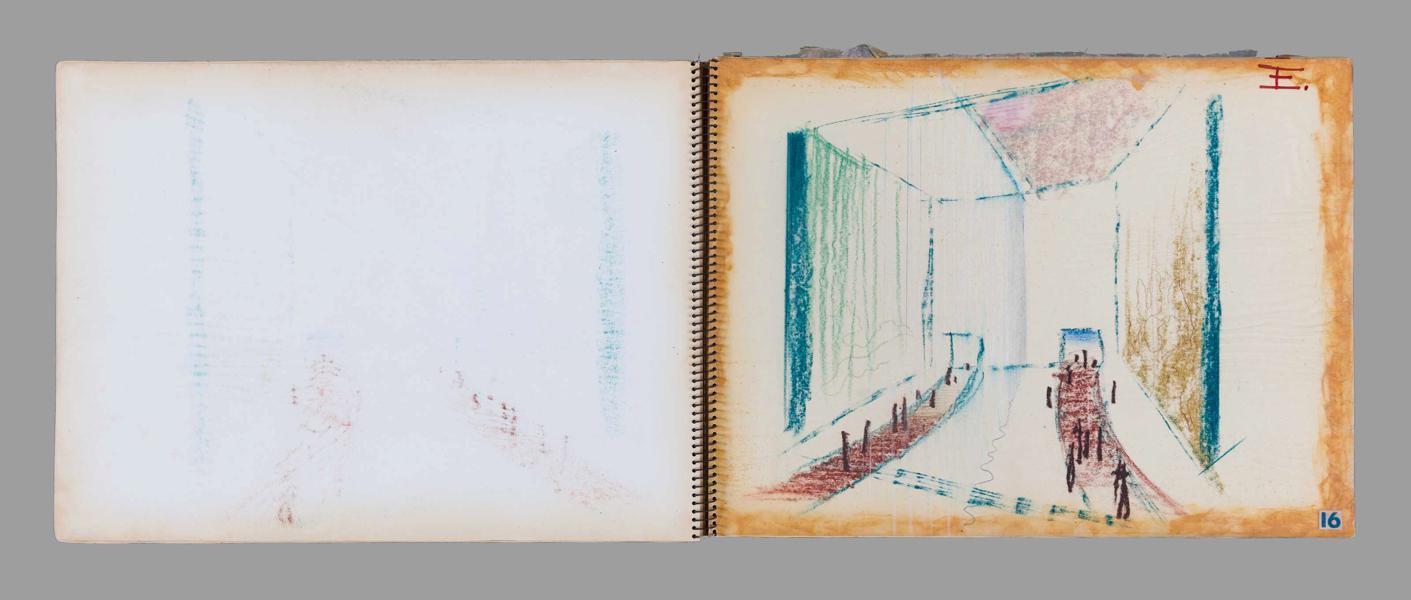 E.
16